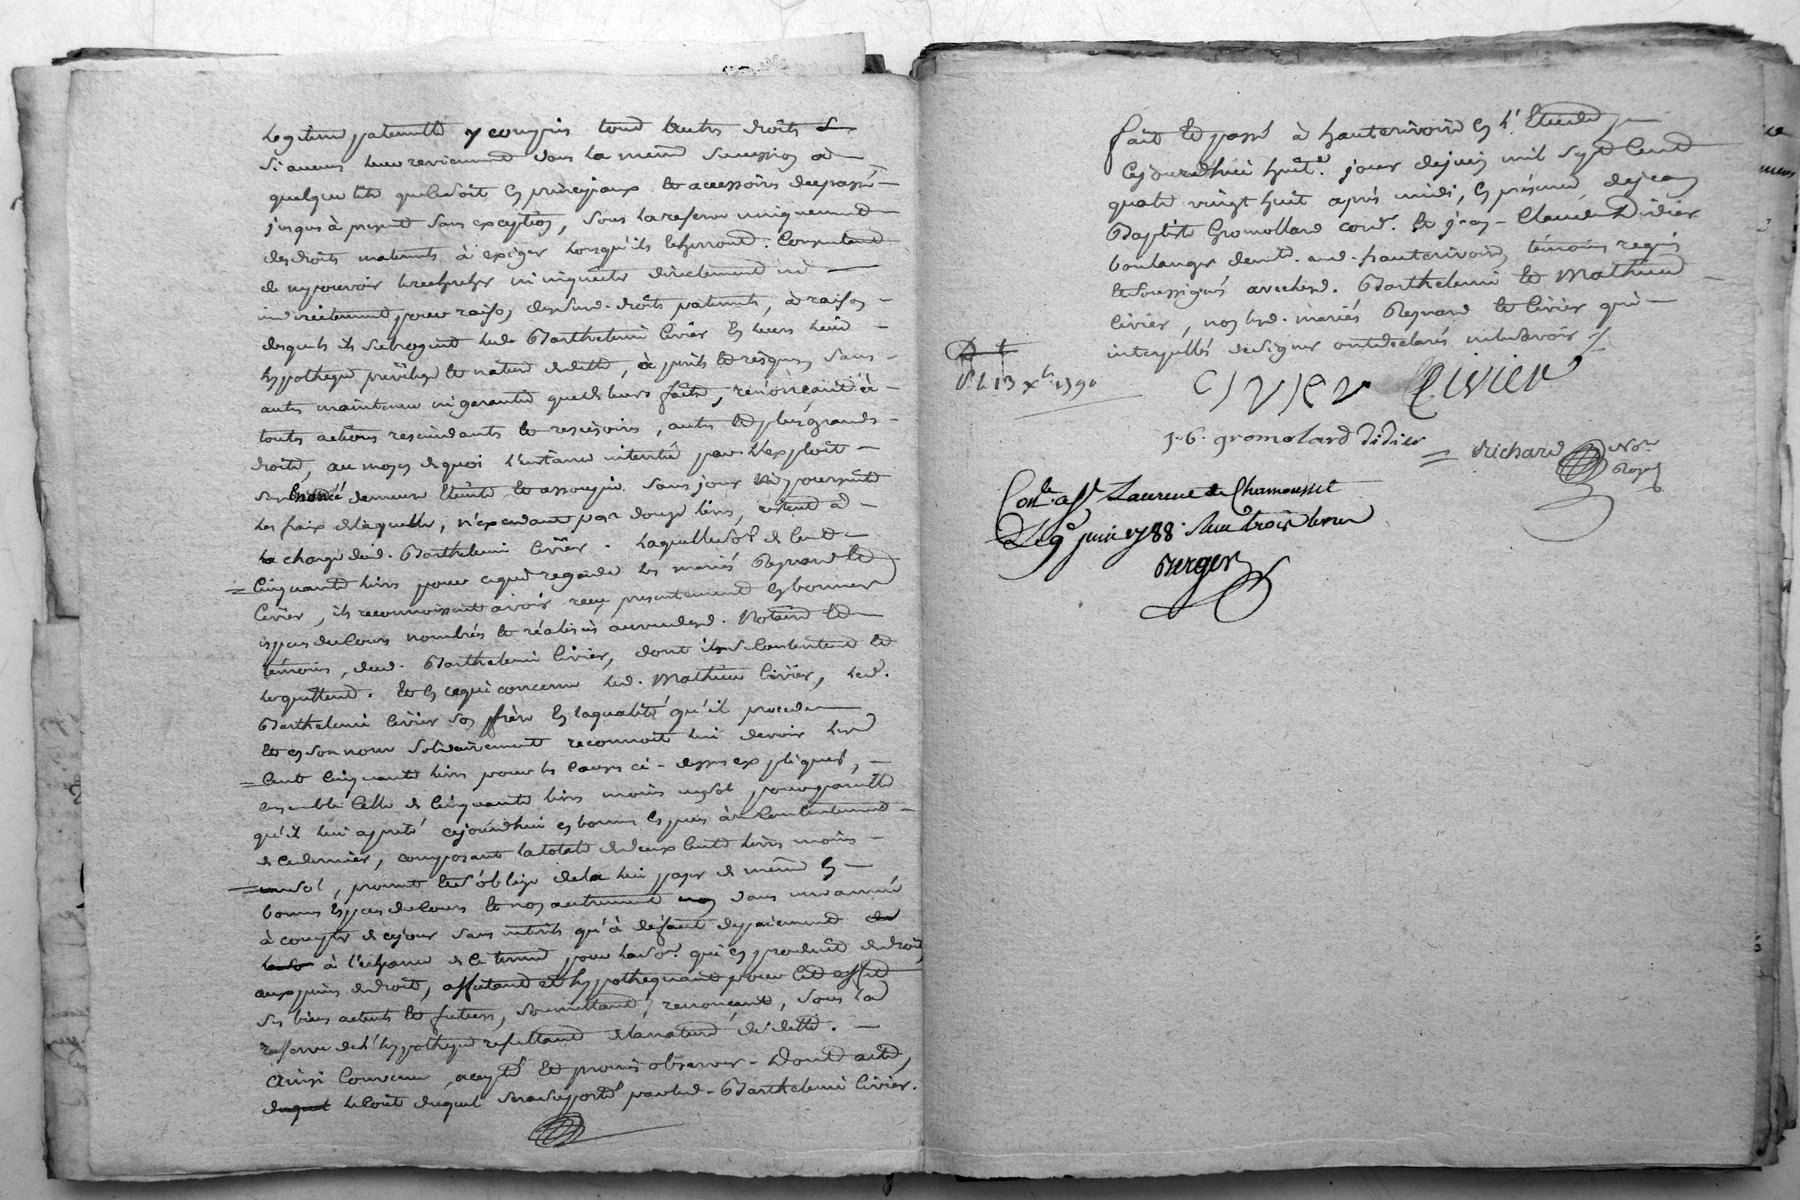 legitime paternelle y compris tous autres droits &
si aucuns leur reviennent dans la meme succession a
quelque titre que ce soit en principaux et accessoires du passé
jusques à present sans exception, sous la reserve uniquement
des droits maternels à exiger lorsqu'ils echerront. Consentant
de ne pouvoir rechercher ni inquiéter directement ni
indirectement pour raison desdits droits paternels, à raison
desquels ils subrogent led. Barthelemi Civier en leurs lieu
hypotheque privilege et nature de dette, à perils et risques, sans
autre maintenue ni garantie que de leurs faits, renonceant à
toutes actions rescindants et rescisoires, autres et plus grands
droits, au moyen de quoi l'instance intentée par l'exploit
demeure éteinte et assoupie sans jour ni poursuite
les frais de laquelle, n'excedant pas douze livres, restent a
la charge dud. Barthelemi Civier. laquelle so.e de cent
cinquante livres pour ce qui regarde les mariés Reynard et
Civier, ils reconnoissent avoir reçu presentement en bonnes
especes de cours nombrés et réalisés au vu desd. Notaire et
témoins, dud. Barthelemi Civier, dont ils se contentent et
le quittent. et en ce qui concerne led. Mathieu Civier, led.
Barthelemi Civier son frère en la qualité qu'il procede
et en son nom solidairement reconnoit lui devoir lad
cent cinquante livres pour les causes ci-dessus expliquées,
ensemble celle de cinquante livres moins un sol, pour pareille
qu'il lui a preté cejourd'hui en bonnes especes à contentement
de ce dernier, composant la totale de deux cents livres moins
un sol, promet et s'oblige de la lui payer de meme en
bonnes especes de cours et non autrement dans une année
à compter de ce jour sans interets qu'à defaut de paiement
à l'échéance de ce terme pour lad. so.e qui en produira de droit
aux peines de droit, affectant et hypothequant pour cet effet
ses biens actuels et futurs, soumettant, renonceant, sous la
reserve de l'hypotheque resultant de la nature de dette.
Ainsi convenu, accepté et promis observer. Dont acte,
duquel le coût duquel sera supporté par led. Barthelemi Civier.
fait et passé à hauterivoire en l'Etude
cejourd'hui huit.e jour de juin mil sept cent
quatre vingt huit après midi, en présence de jean
Baptiste Gromollard cord.r et jean-Claude Didier
boulanger dem.t aud. hauterivoire, témoins requis
et soussignés avec lesd. Barthelemi et Mathieu
Civier, non lesd. mariés Reynard et Civier qui
interpellés de signer ont declarés ne le savoir
D. L.
13 Xbre 1790
CIVIER Civier
J. B. gromolard Didier
Richard No.re
Royal
Con.lé a St Laurent de Chamousset
Le 9e juin 1788. Reçu trois livres
Berger